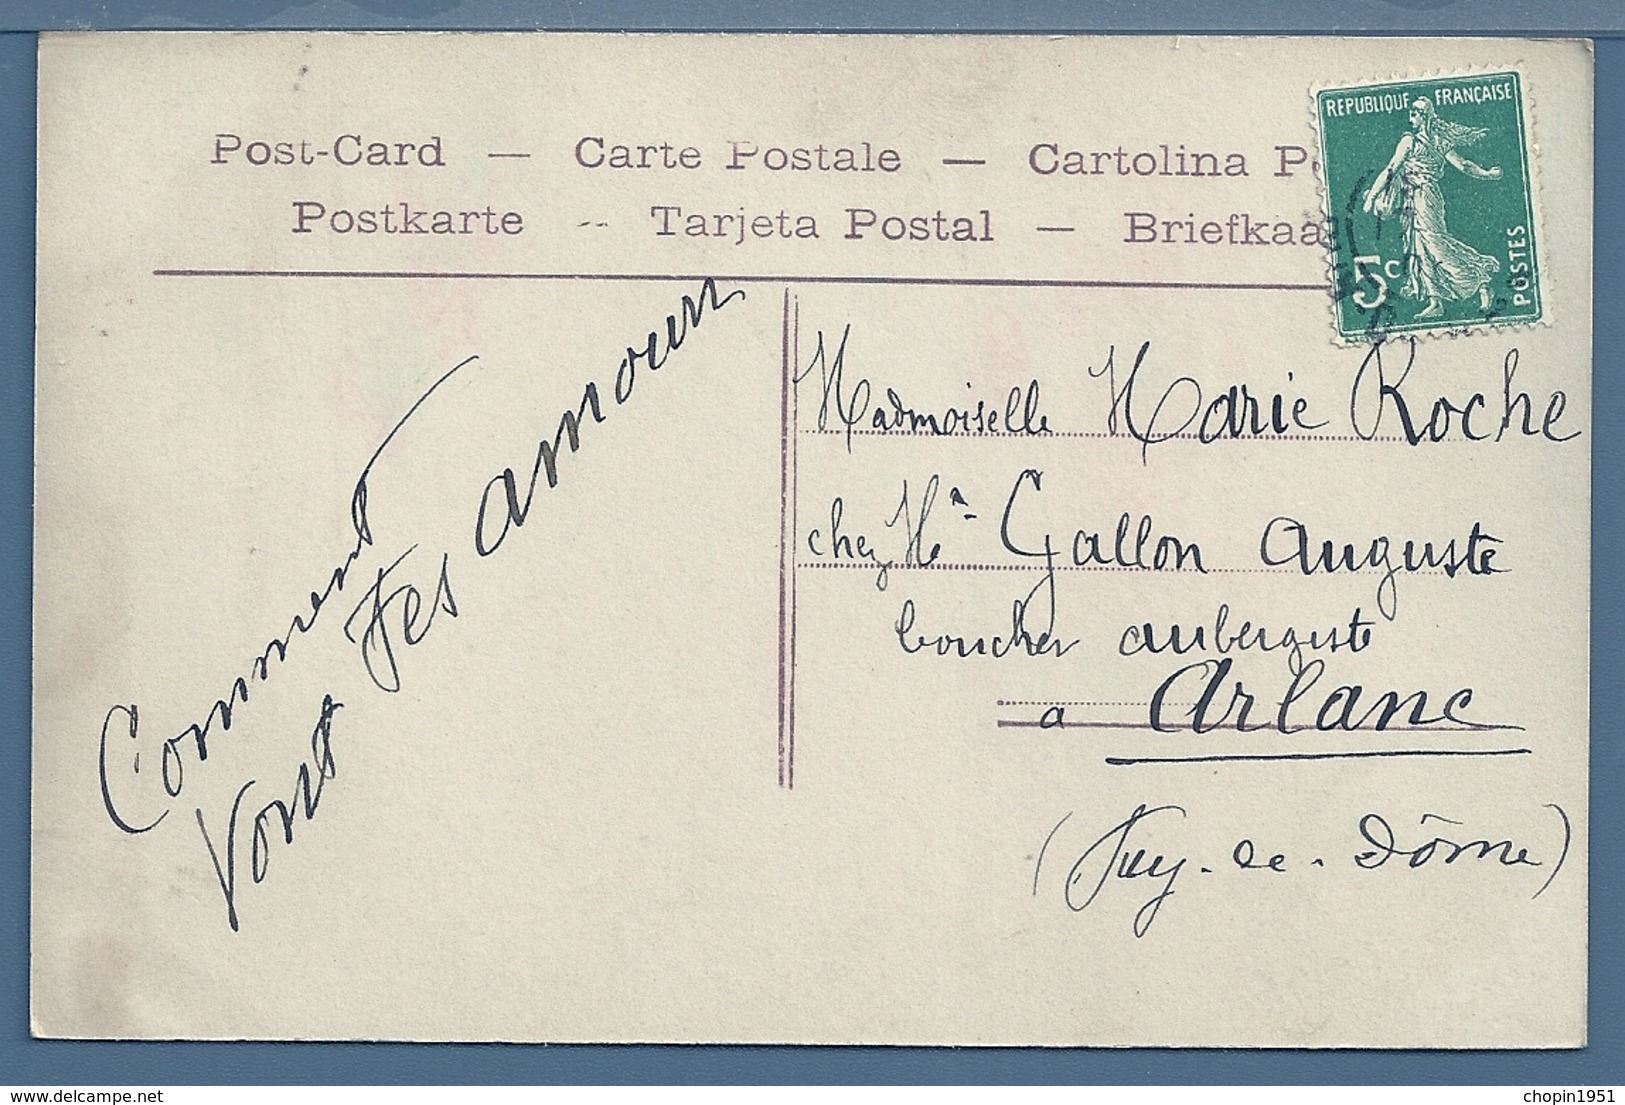 Post-Card — Carte Postale — Cartolina Po
Postkarte -- Tarjeta Postal — Briefkaa
REPUBLIQUE FRANÇAISE
5c
POSTES
Comment
Vont tes amours
Madmoiselle Marie Roche
chez Mr Gallon Auguste
boucher aubergiste
a Arlanc
(Puy-de-Dôme)
delcampe.net
chopin1951